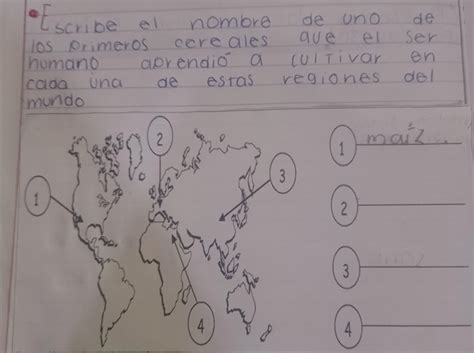 • Escribe el nombre de uno de
los primeros cereales que el ser
humano aprendió a cultivar en
cada una de estas regiones del
mundo
2
1
3
4
1 maíz.
2
3
4